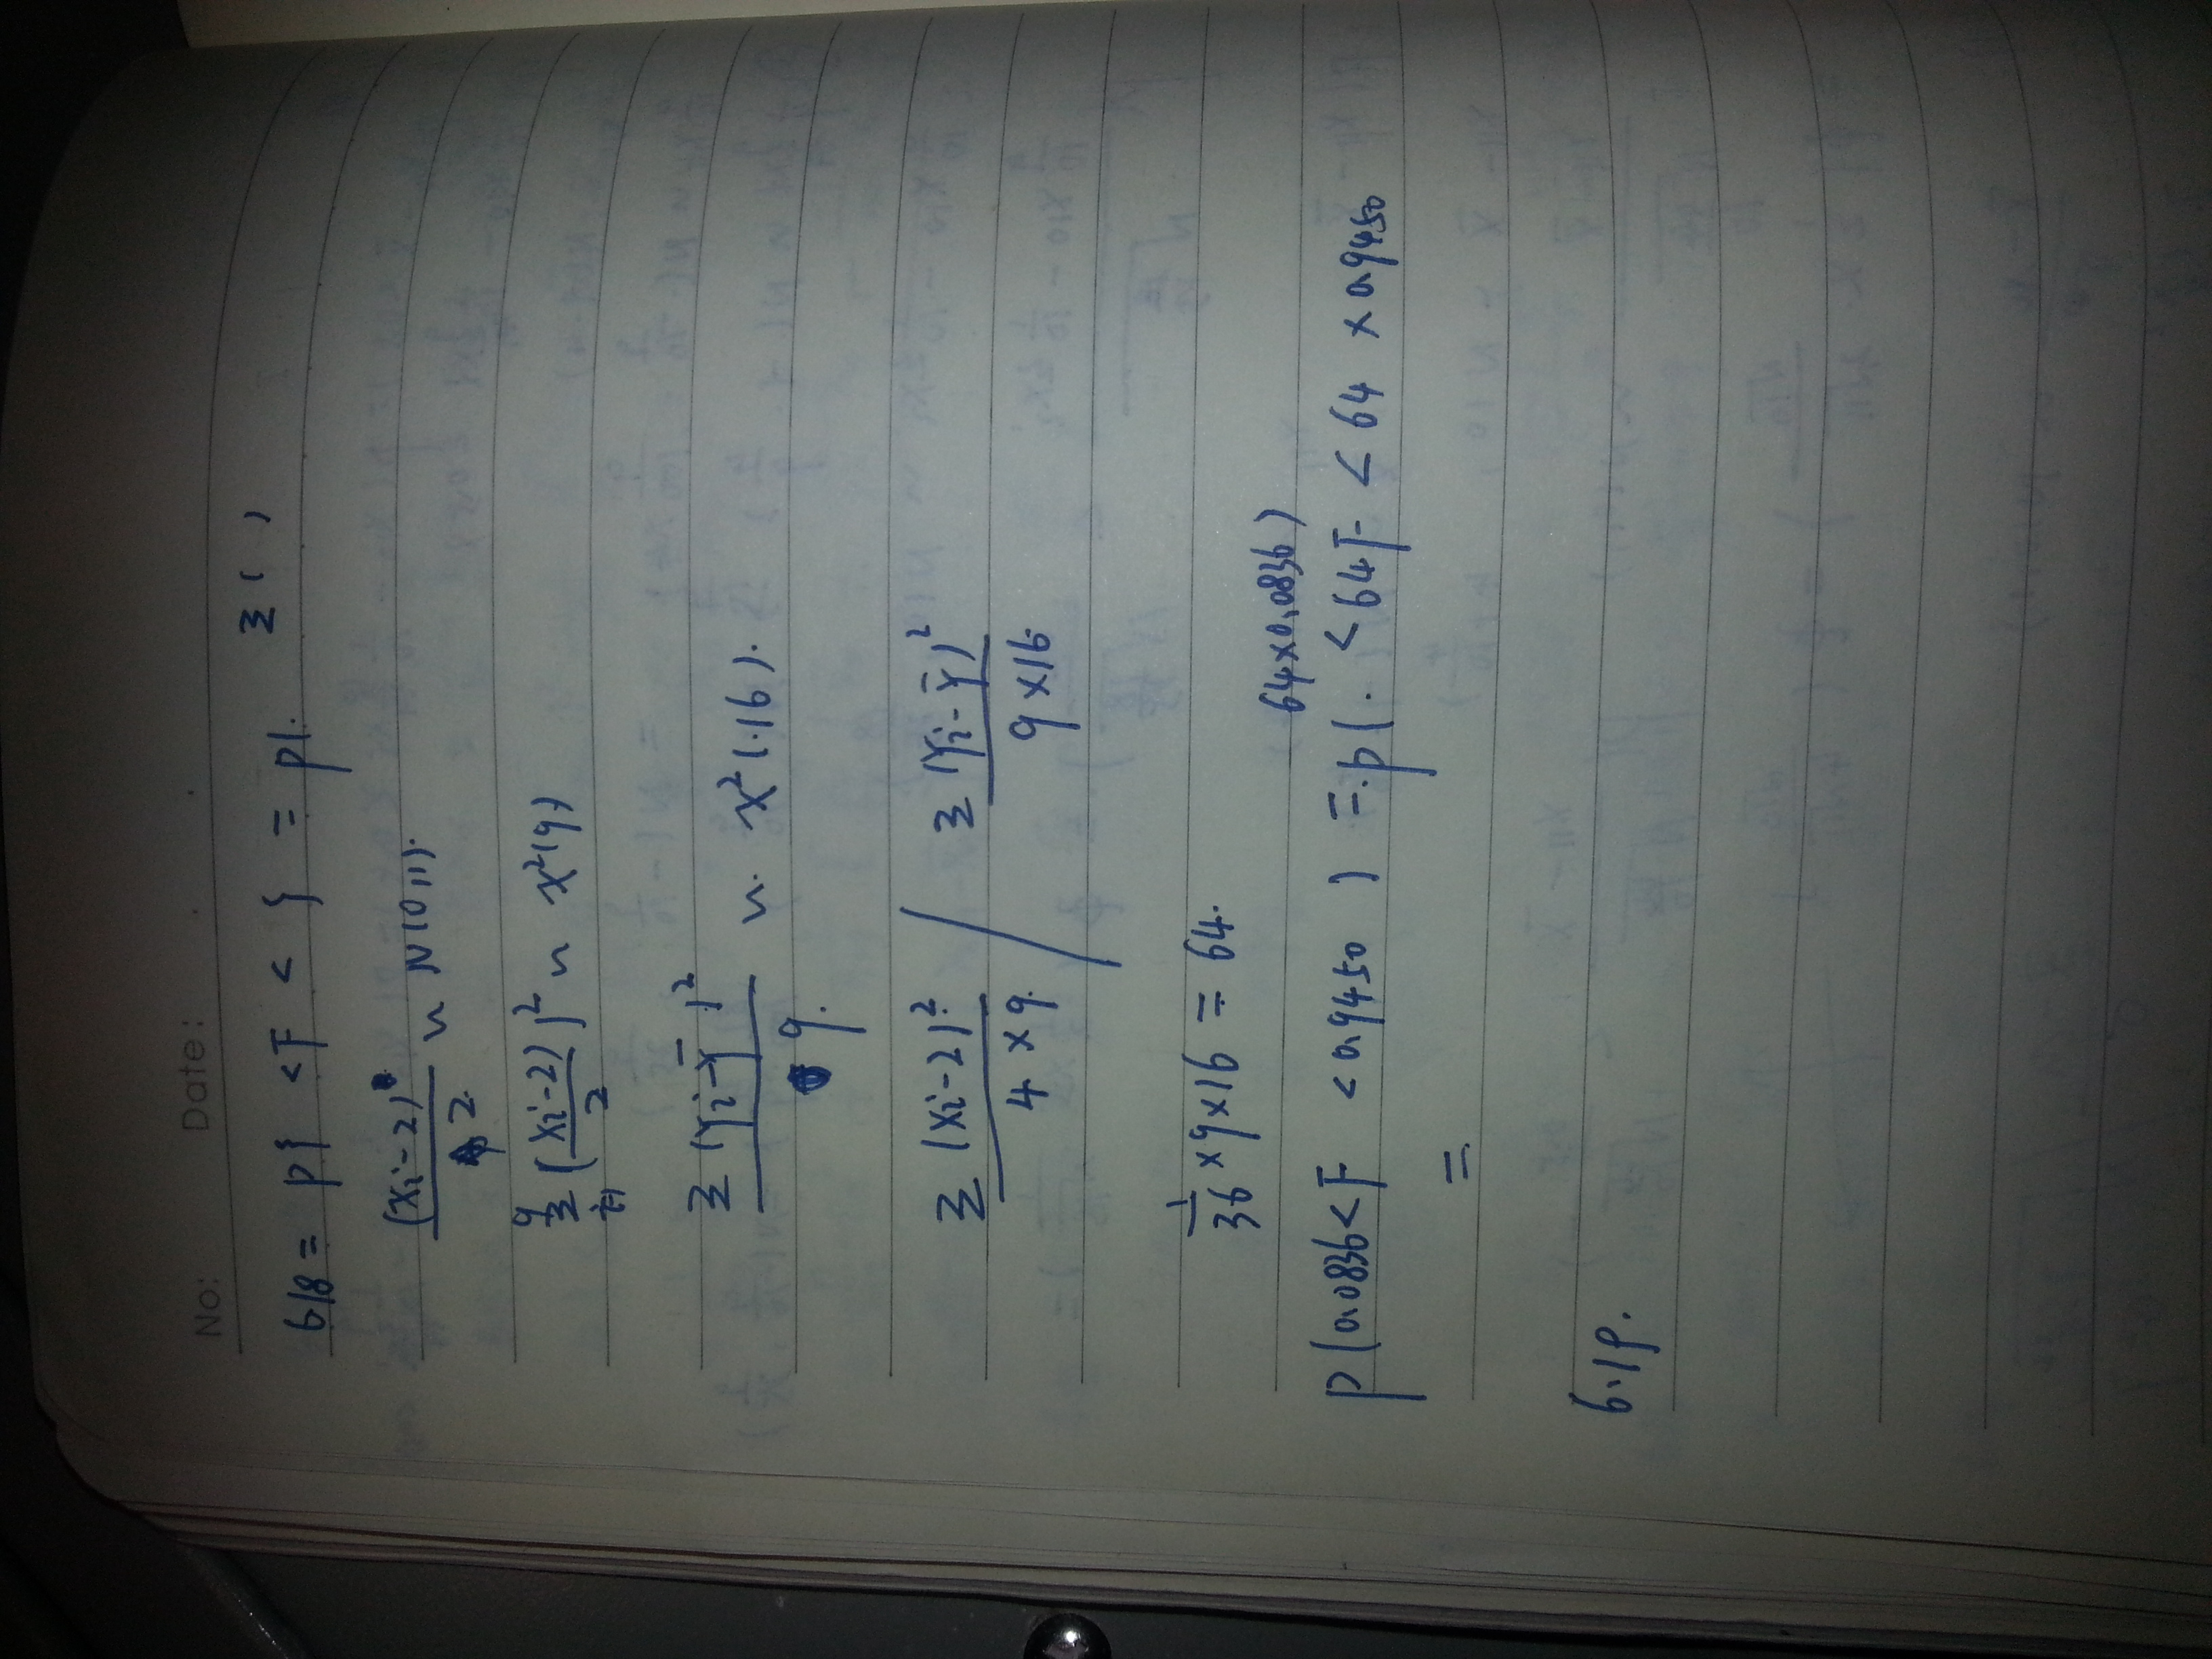 No: Date:
618 = P{ < F < } = P(. Σ ( )
(Xi-2) / 2 ~ N(0,1).
9 Σ i=1 ( (Xi-2) / 2 )² ~ χ²(9)
Σ (Yi-Ȳ)² / 9. ~ χ²(16).
Σ (Xi-2)² / 4×9 / Σ (Yi-Ȳ)² / 9×16
1/36 × 9×16 = 64.
64×0.0836)
P(0.0836< F <0.9450 ) =.P(. <64F < 64 ×0.9450
=.
6.19.